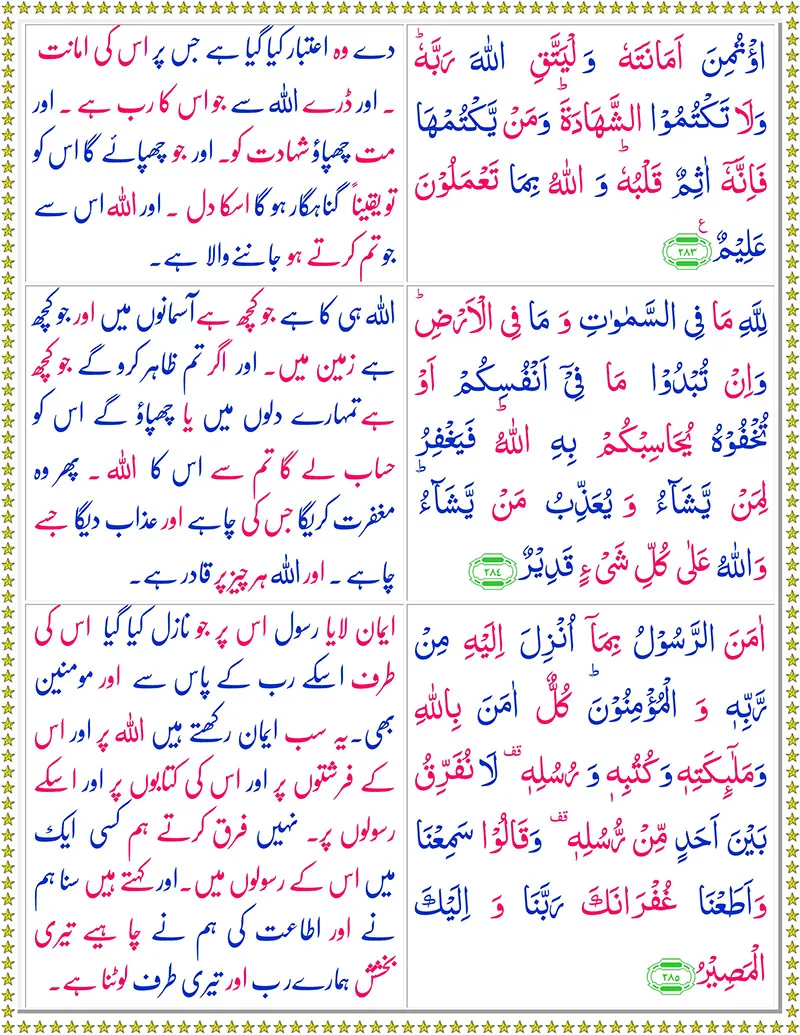 اؤْتُمِنَ اَمَانَتَهٗ وَ لْیَتَّقِ اللّٰهَ رَبَّهٗ ؕ
وَلَا تَكْتُمُوا الشَّهَادَةَ ؕ وَمَنْ یَّكْتُمْهَا
فَاِنَّهٗۤ اٰثِمٌ قَلْبُهٗ ؕ وَ اللّٰهُ بِمَا تَعْمَلُوْنَ
عَلِیْمٌ ع ۲۸۳
دے وہ اعتبار کیا گیا ہے جس پر اس کی امانت
۔ اور ڈرے اللہ سے جو اس کا رب ہے ۔ اور
مت چھپاؤ شہادت کو۔ اور جو چھپائے گا اس کو
تو یقیناً گناہگار ہو گا اسکا دل ۔ اور اللہ اس سے
جو تم کرتے ہو جاننے والا ہے۔
لِلّٰهِ مَا فِی السَّمٰوٰتِ وَ مَا فِی الْاَرْضِ ؕ
وَاِنْ تُبْدُوْا مَا فِیْۤ اَنْفُسِكُمْ اَوْ
تُخْفُوْهُ یُحَاسِبْكُمْ بِهِ اللّٰهُ ؕ فَیَغْفِرُ
لِمَنْ یَّشَآءُ وَ یُعَذِّبُ مَنْ یَّشَآءُ ؕ
وَاللّٰهُ عَلٰی كُلِّ شَیْءٍ قَدِیْرٌ ۲۸۴
اللہ ہی کا ہے جو کچھ ہے آسمانوں میں اور جو کچھ
ہے زمین میں۔ اور اگر تم ظاہر کرو گے جو کچھ
ہے تمہارے دلوں میں یا چھپاؤ گے اس کو
حساب لے گا تم سے اس کا اللہ ۔ پھر وہ
مغفرت کریگا جس کی چاہے اور عذاب دیگا جسے
چاہے ۔ اور اللہ ہر چیز پر قادر ہے۔
اٰمَنَ الرَّسُوْلُ بِمَاۤ اُنْزِلَ اِلَیْهِ مِنْ
رَّبِّهٖ وَ الْمُؤْمِنُوْنَ ؕ كُلٌّ اٰمَنَ بِاللّٰهِ
وَمَلٰٓىِٕكَتِهٖ وَكُتُبِهٖ وَ رُسُلِهٖ قف لَا نُفَرِّقُ
بَیْنَ اَحَدٍ مِّنْ رُّسُلِهٖ قف وَقَالُوْا سَمِعْنَا
وَاَطَعْنَا غُفْرَانَكَ رَبَّنَا وَ اِلَیْكَ
الْمَصِیْرُ ۲۸۵
ایمان لایا رسول اس پر جو نازل کیا گیا اس کی
طرف اسکے رب کے پاس سے اور مومنین
بھی۔ یہ سب ایمان رکھتے ہیں اللہ پر اور اس
کے فرشتوں پر اور اس کی کتابوں پر اور اسکے
رسولوں پر۔ نہیں فرق کرتے ہم کسی ایک
میں اس کے رسولوں میں۔ اور کہتے ہیں سنا ہم
نے اور اطاعت کی ہم نے چاہیے تیری
بخشش ہمارے رب اور تیری طرف لوٹنا ہے۔